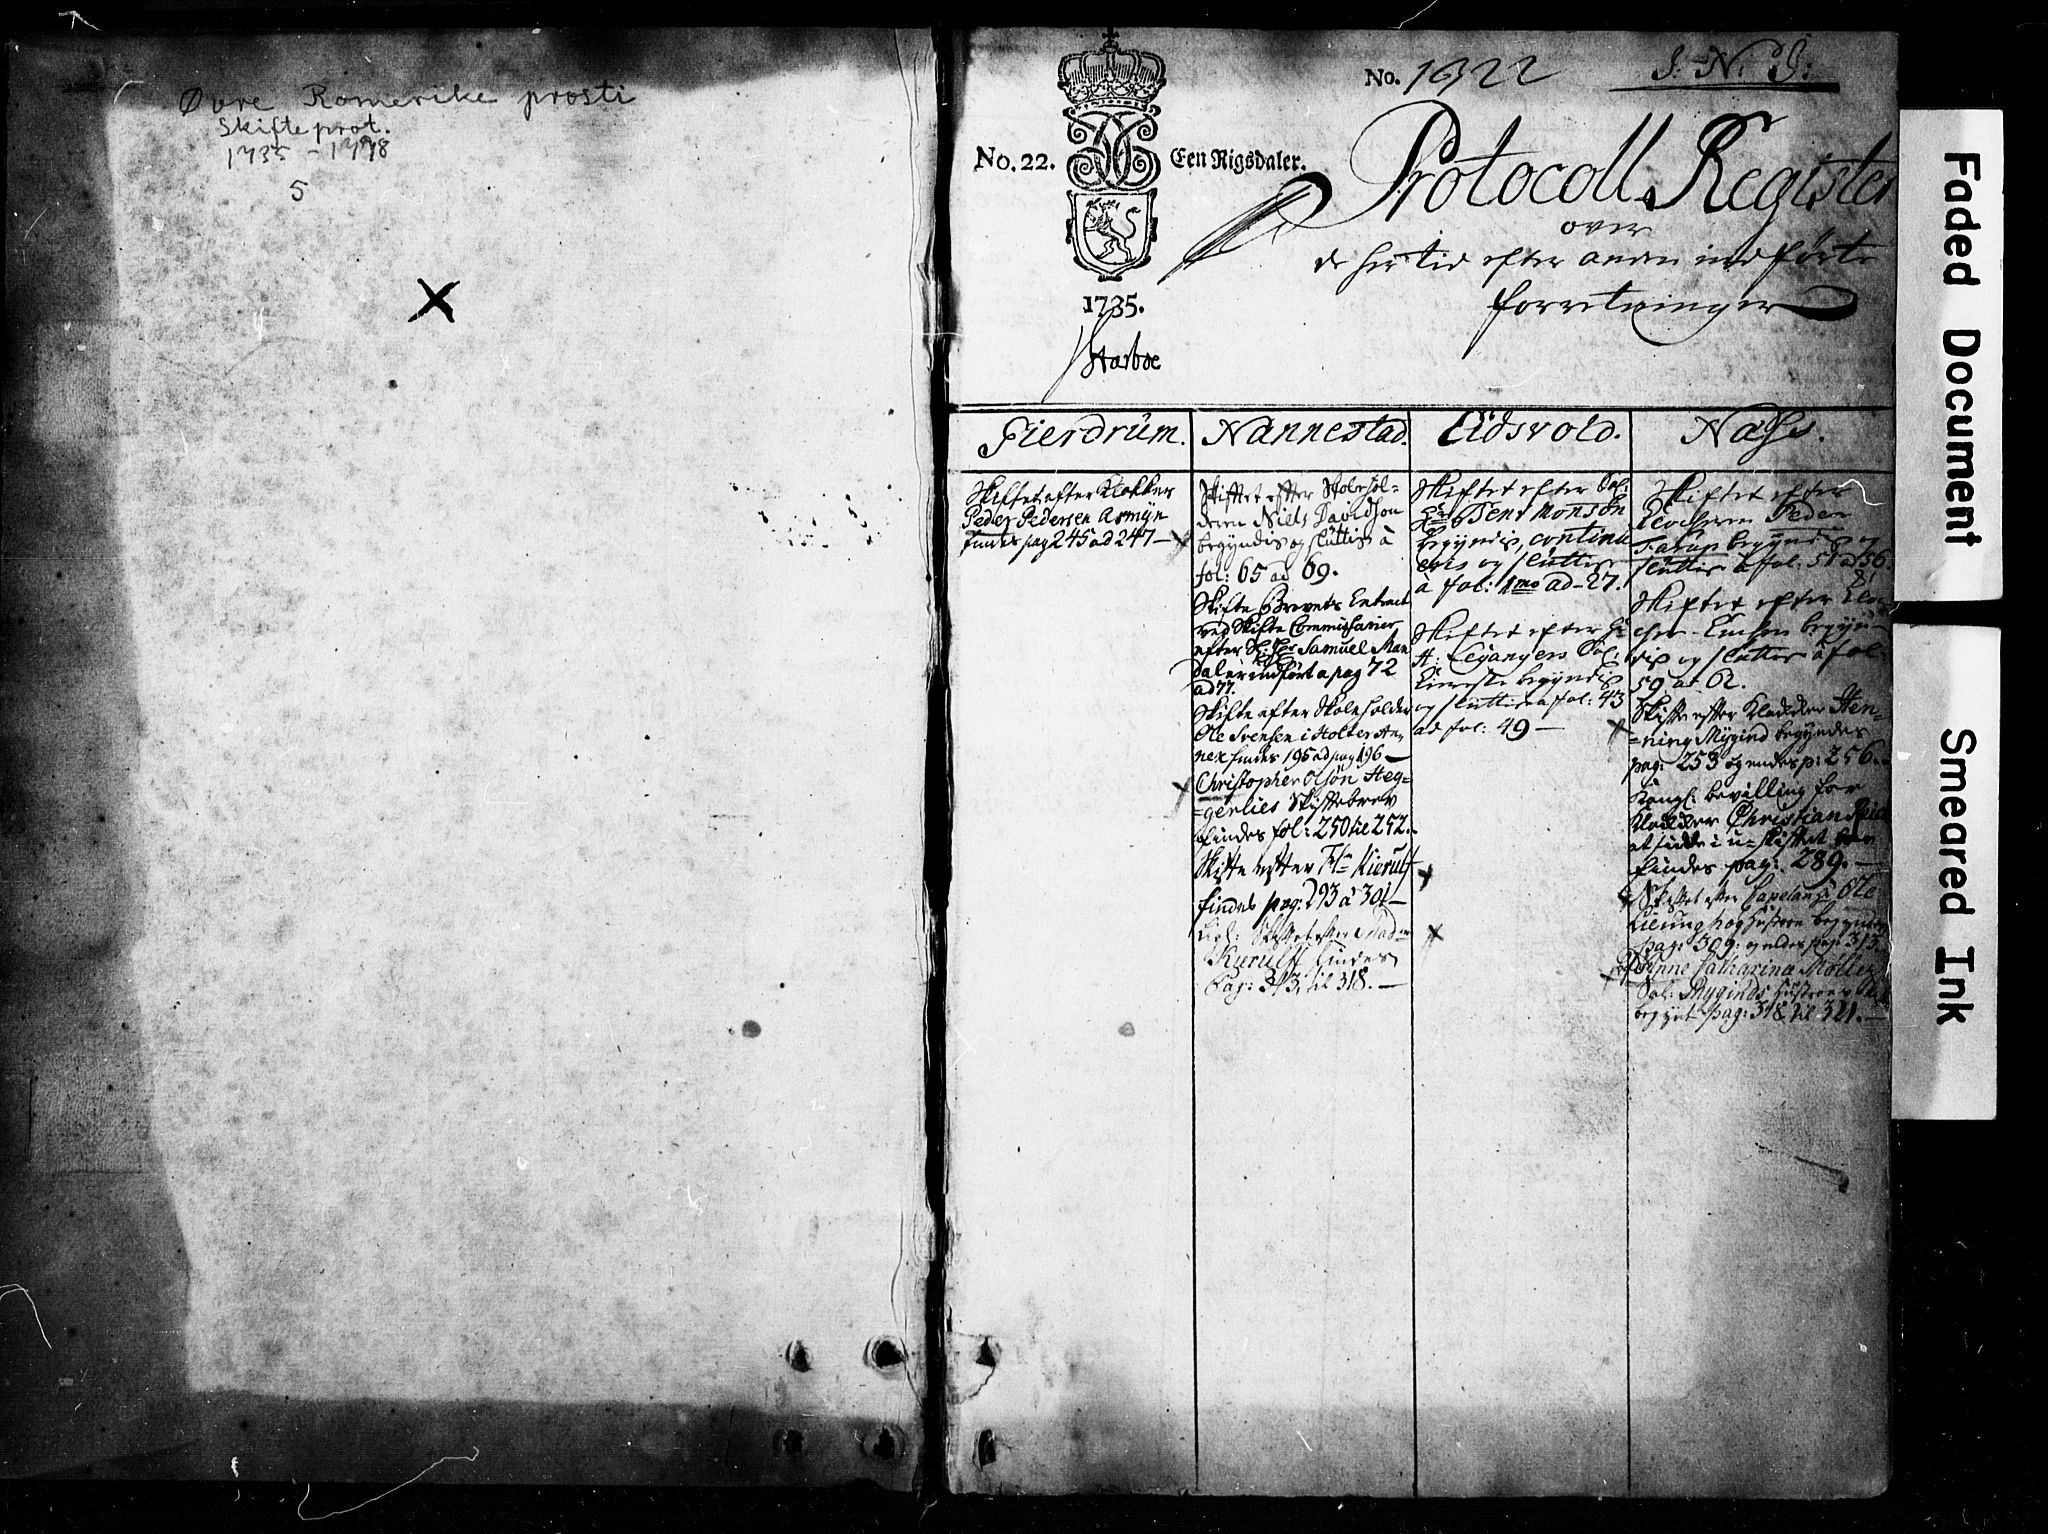 Øvre Romerike prosti
Skifteprot.
1735 - 1778
5
X
No. 1322
J: N: J:
No. 22.
Een Rigsdaler.
1735.
Protocoll Register
over
de her tid efter anden indførte
forretninger
Fierdrum.
Skiftet efter Klokker
Peder Pedersen Asmyn
findes pag 245 ad 247 —
Nannestad.
Skifftet efter Skolehol=
deren Niels Davidson
begyndis og sluttis à
fol: 65 ad 69.
Skifte Brevets Extract
ved Skifte Commissarier
efter Samuel Man
dal er indført a pag 72
ad 77.
Skifte efter Skoleholder
Ole Svensen i Holter An=
nex findes 195 ad pag 196 —
Christopher Olsøn Heg=
=gerlies Skiftebrev
findes fol: 250 til 252.
Skifte efter Kierulf
findes pag: 293 à 301 —
Skiftet efter Mad
Kierulff findes
Pag: 313 til 318. —
Eidsvold.
Skiftet efter Sal:
Hr Bent Monsøn
begyndis, continu
eris og sluttis
à fol: 1mo ad 27.
Skiftet efter H:
A: Leganger Sal:
begyndis
og sluttis a fol: 43
ad fol: 49 —
Næss.
Skiftet efter
Klocheren Peder
Farup begyndis og
sluttis à fol: 51 ad 56.
Skiftet efter Kloc
cher begyn=
dis og sluttis à fol:
59 ad 62.
Skifte efter Klocker Hen=
=ning Mygind begyndes
pag: 253 og endes p: 256.
Kongl: bevilling for
Klocker Christian
at sidde i u-skiftet boe
findes pag: 289. —
Skiftet efter Capelan Ole
og Hustrue begyndes
pag: 309: og endes pag 313
Anne Catharina Møller
Sal: Myginds Hustrue
begynt pag: 318 til 321. —
Faded Document
Smeared Ink